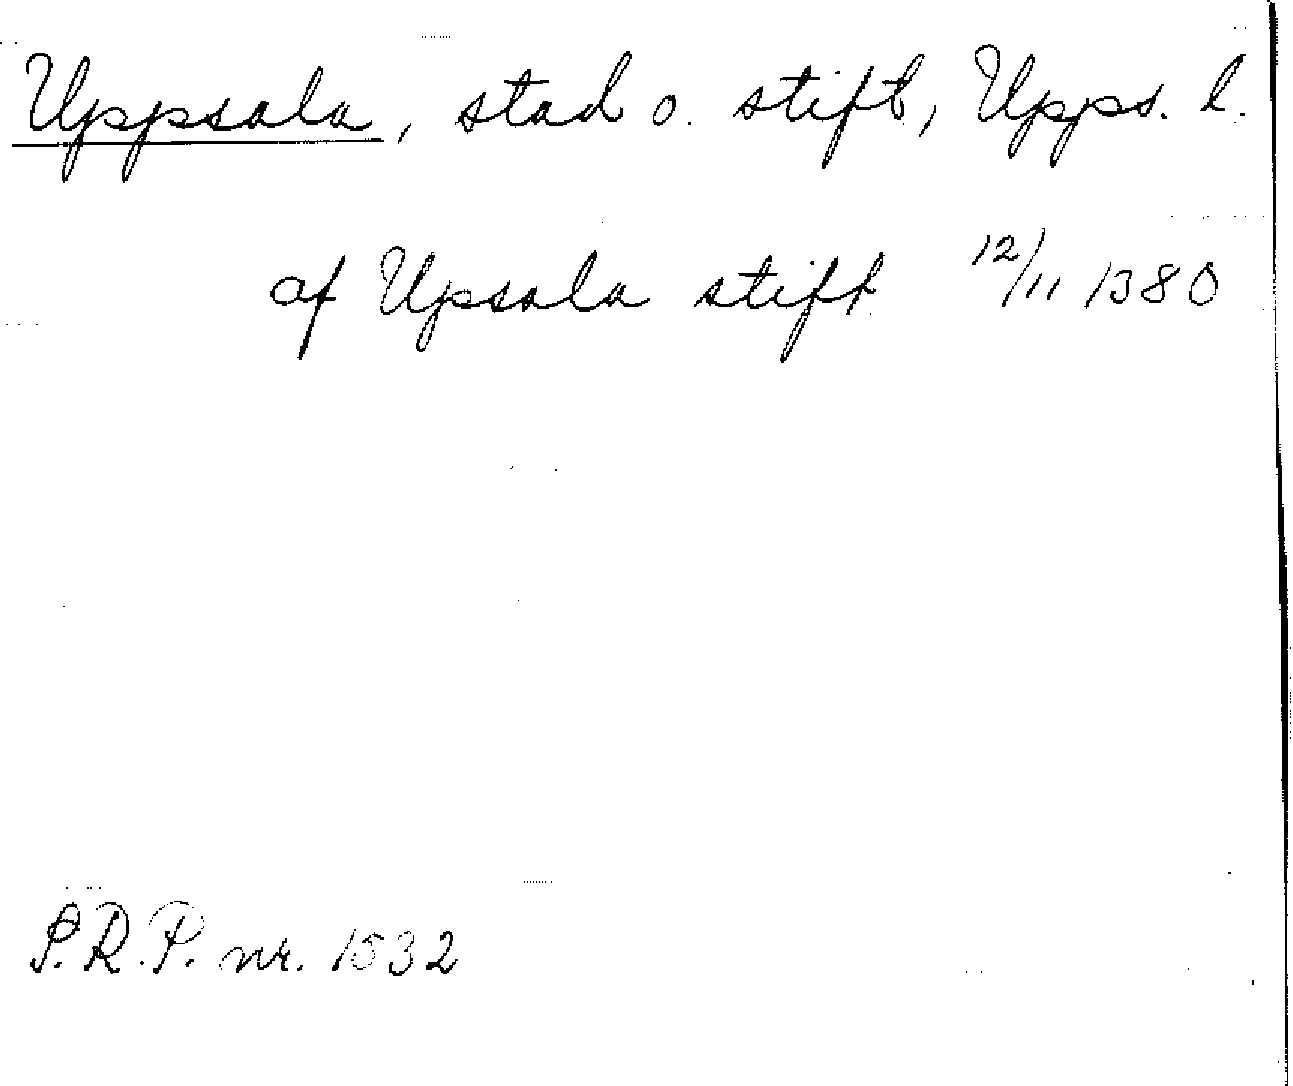 Uppsala, stad o. stift, Upps. l.
af Upsala stift 12/11 1380
S.R.P. nr. 1532